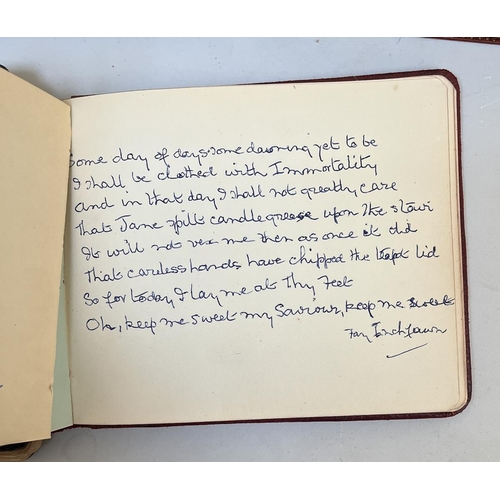 Some day of days some dawning yet to be
I shall be clothed with Immortality
and in that day I shall not greatly care
That Jane spilt candle grease upon the stair
It will not vex me then as once it did
That careless hands have chipped the teapot lid
So for today I lay me at Thy Feet
Oh, keep me sweet my Saviour, keep me sweet
Fay Inchfawn